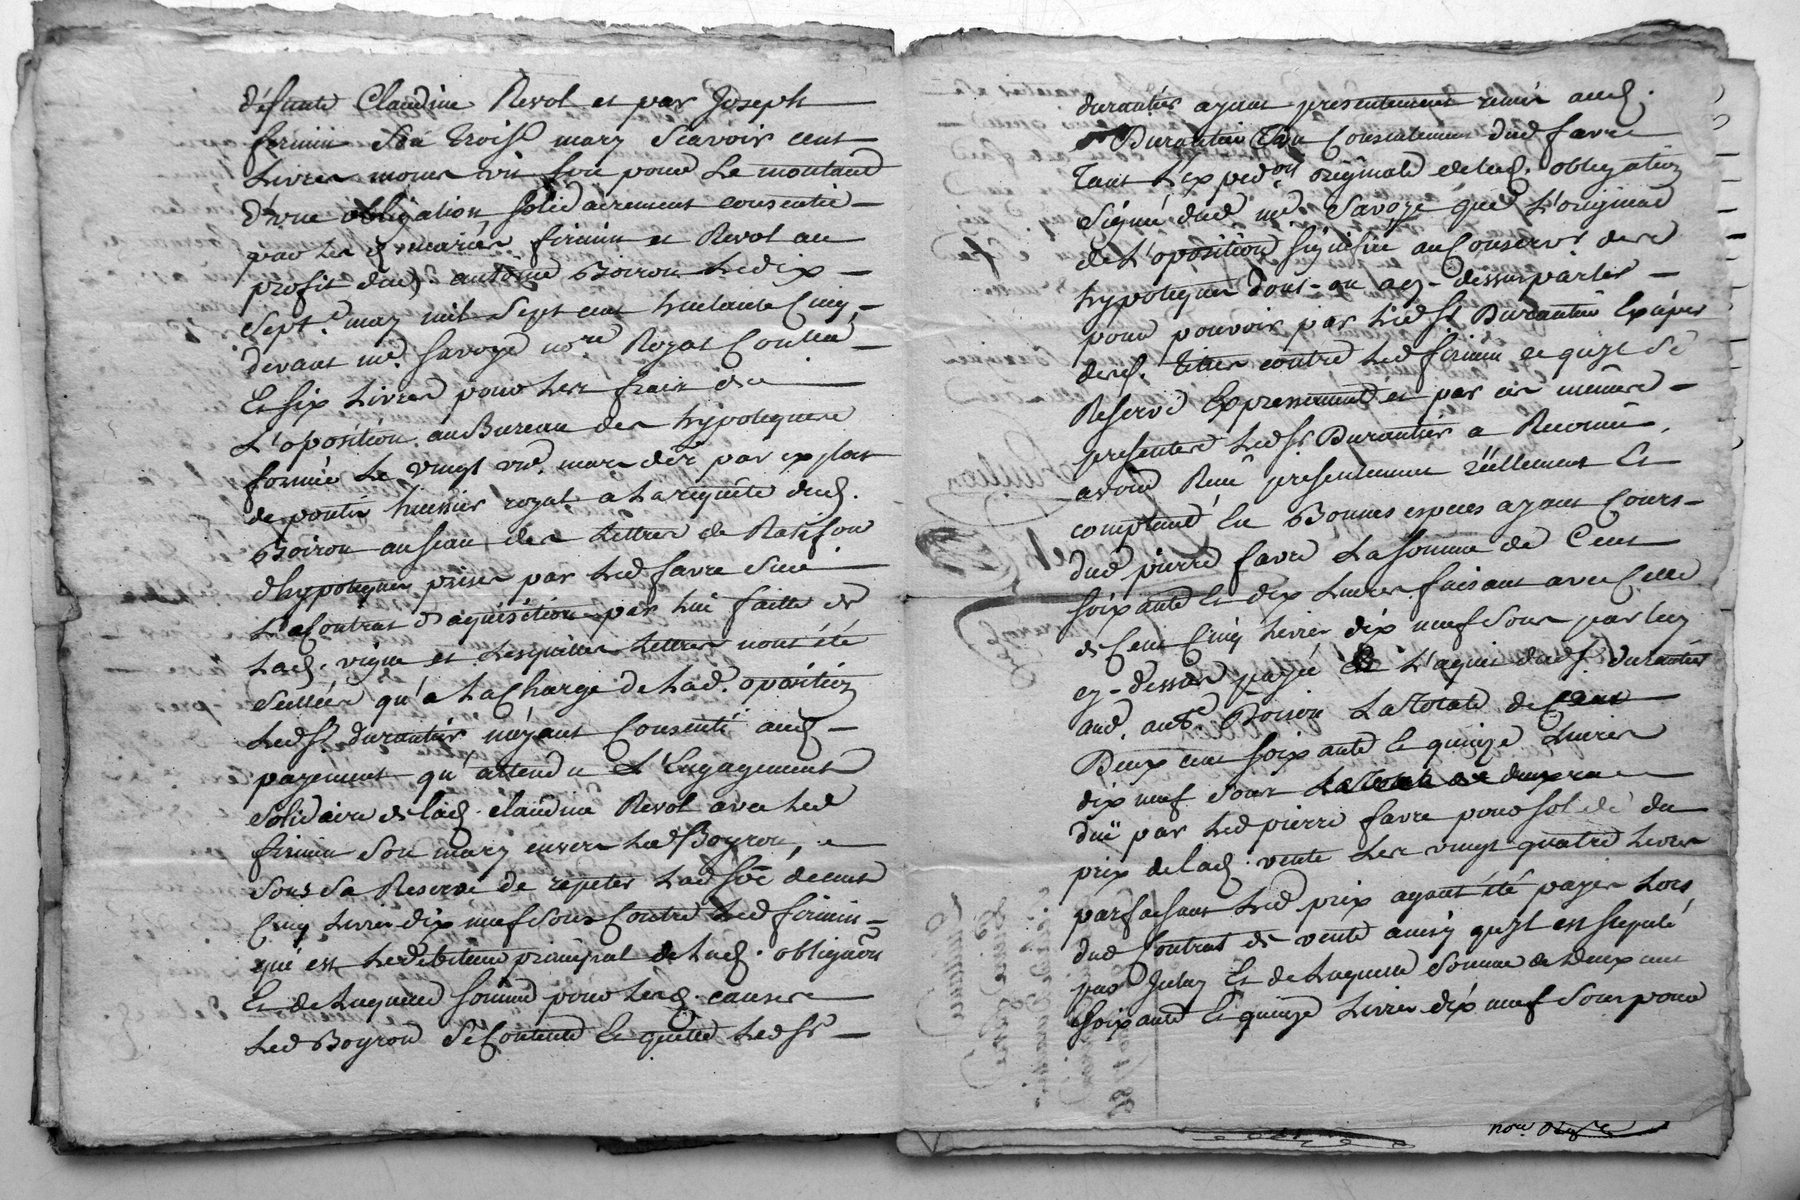 défunte Claudine Revol et par Joseph
firmin son troise mary Scavoir cent
Livres moins un sou pour Le montant
d'une obligation solidairement consentie
par les d mariés firmin et Revol au
profit dud. antoine Boiron Le dix
sept.e may mil sept cent huitante Cinq
devant me Savoye nore Royal
Et six Livres pour les frais de
L'oposition au Bureau des hypoteques
formée Le vingt mars der par exploit
de pontu huissier royal a la requête dud.
Boiron au sceau des Lettres de Ratifon
d'hypoteques prises par led favre
contrat d'aquisition par lui faitte de
Lad. vigne et Lesquelles Lettres n'ont été
scellées qu'a la Charge de lad. oposition
Led Sr. durantin n'ayant Consenti aud
payement qu'attendu L'Engagement
solidaire de lad. claudine Revol avec led
firmin son mary envers led Boyron,
sous sa Reserve de repeter lad sôe de cent
Cinq Livres dix neuf sous Contre Led firmin
qui est Le débiteur principal de lad. obligaon
Et de Laquelle somme pour lesd. causes
Led Boyron se Contente Et quitte Led Sr
durantin ayant presentement remis aud.
Durantin du Consentement dud favre
tant L'expedon originale de lad. obligation
signé dud me Savoye que L'original
de L'oposition signifiée au Conservr des
hypoteques dont on a cy-dessus parler
pour pouvoir par Led Sr Durantin Exciper
desd. titres contre Led firmin ce qu'il se
Reserve Expressement et par ces mêmes
presentes Led Sr Durantin a Reconnu
avoir Reçu presentement réellement Et
comptant En Bonnes especes ayant Cours
dud pierre favre La somme de Cent
soixante Et dix Livres faisant avec Celle
de Cent Cinq Livres dix neuf sous par luy
cy-dessus payée a L'aquit dud Sr durantin
aud. ante Boiron La totale de
Deux cent soixante Et quinze Livres
dix neuf sous
due par Led pierre favre pour solde du
prix de lad. vente Les vingt quatre Livres
parfaisant Led prix ayant été payés Lors
dud Contrat de vente ainsy qu'il est stipulé
par Iceluy Et de Laquelle somme de deux cent
soixante Et quinze Livres dix neuf sous pour